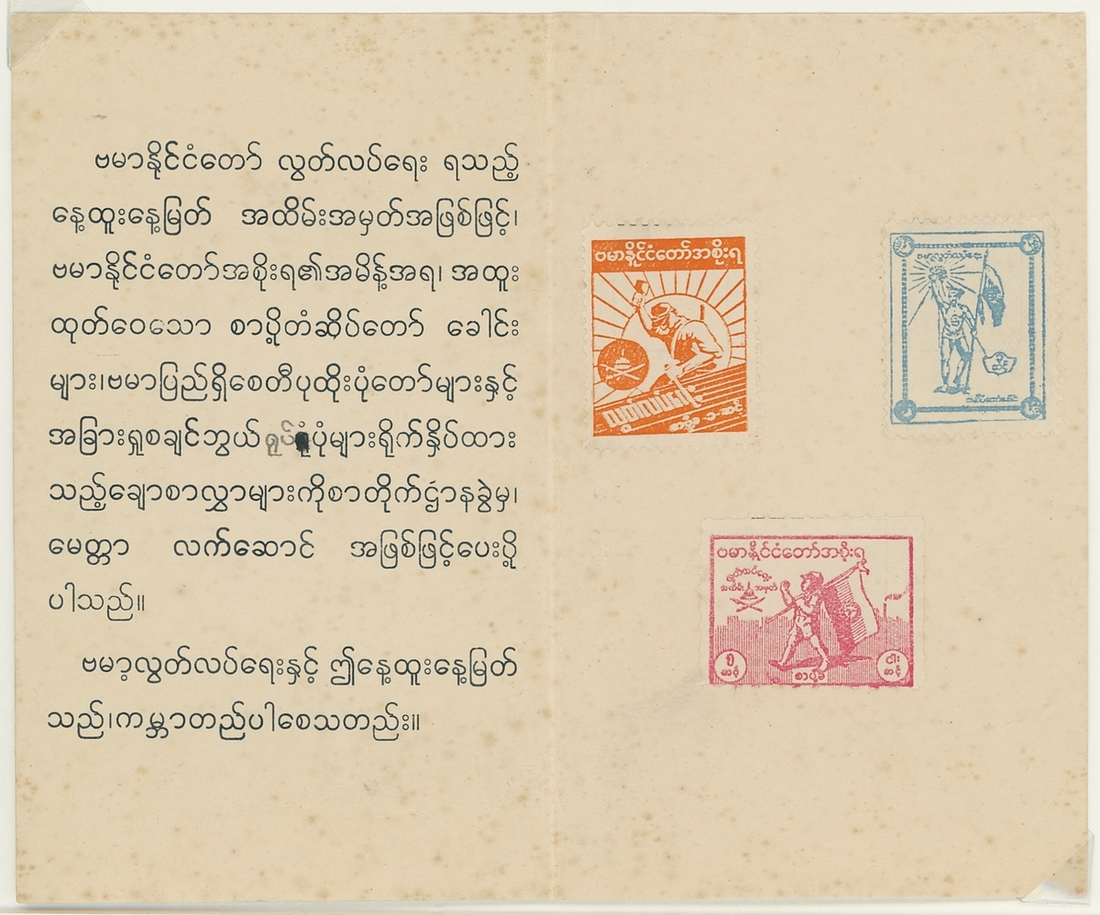 ဗမာနိုင်ငံတော် လွတ်လပ်ရေး ရသည့်
နေ့ထူးနေ့မြတ် အထိမ်းအမှတ်အဖြစ်ဖြင့်၊
ဗမာနိုင်ငံတော်အစိုးရ၏အမိန့်အရ၊ အထူး
ထုတ်ဝေသော စာပို့တံဆိပ်တော် ခေါင်း
များ၊ဗမာပြည်ရှိစေတီပုထိုးပုံတော်များနှင့်
အခြားရှုစချင်ဘွယ် ပုံများရိုက်နှိပ်ထား
သည့်ချောစာလွှာများကိုစာတိုက်ဌာနခွဲမှ၊
မေတ္တာ လက်ဆောင် အဖြစ်ဖြင့်ပေးပို့
ပါသည်။
ဗမာ့လွတ်လပ်ရေးနှင့် ဤနေ့ထူးနေ့မြတ်
သည်၊ကမ္ဘာတည်ပါစေသတည်း။
ဗမာနိုင်ငံတော်အစိုးရ
လွတ်လပ်ရေး
ဗမာနိုင်ငံတော်အစိုးရ
လွတ်လပ်ရေး
အထိမ်း အမှတ်
ငါး
ဆင့်
စာပို့ခ